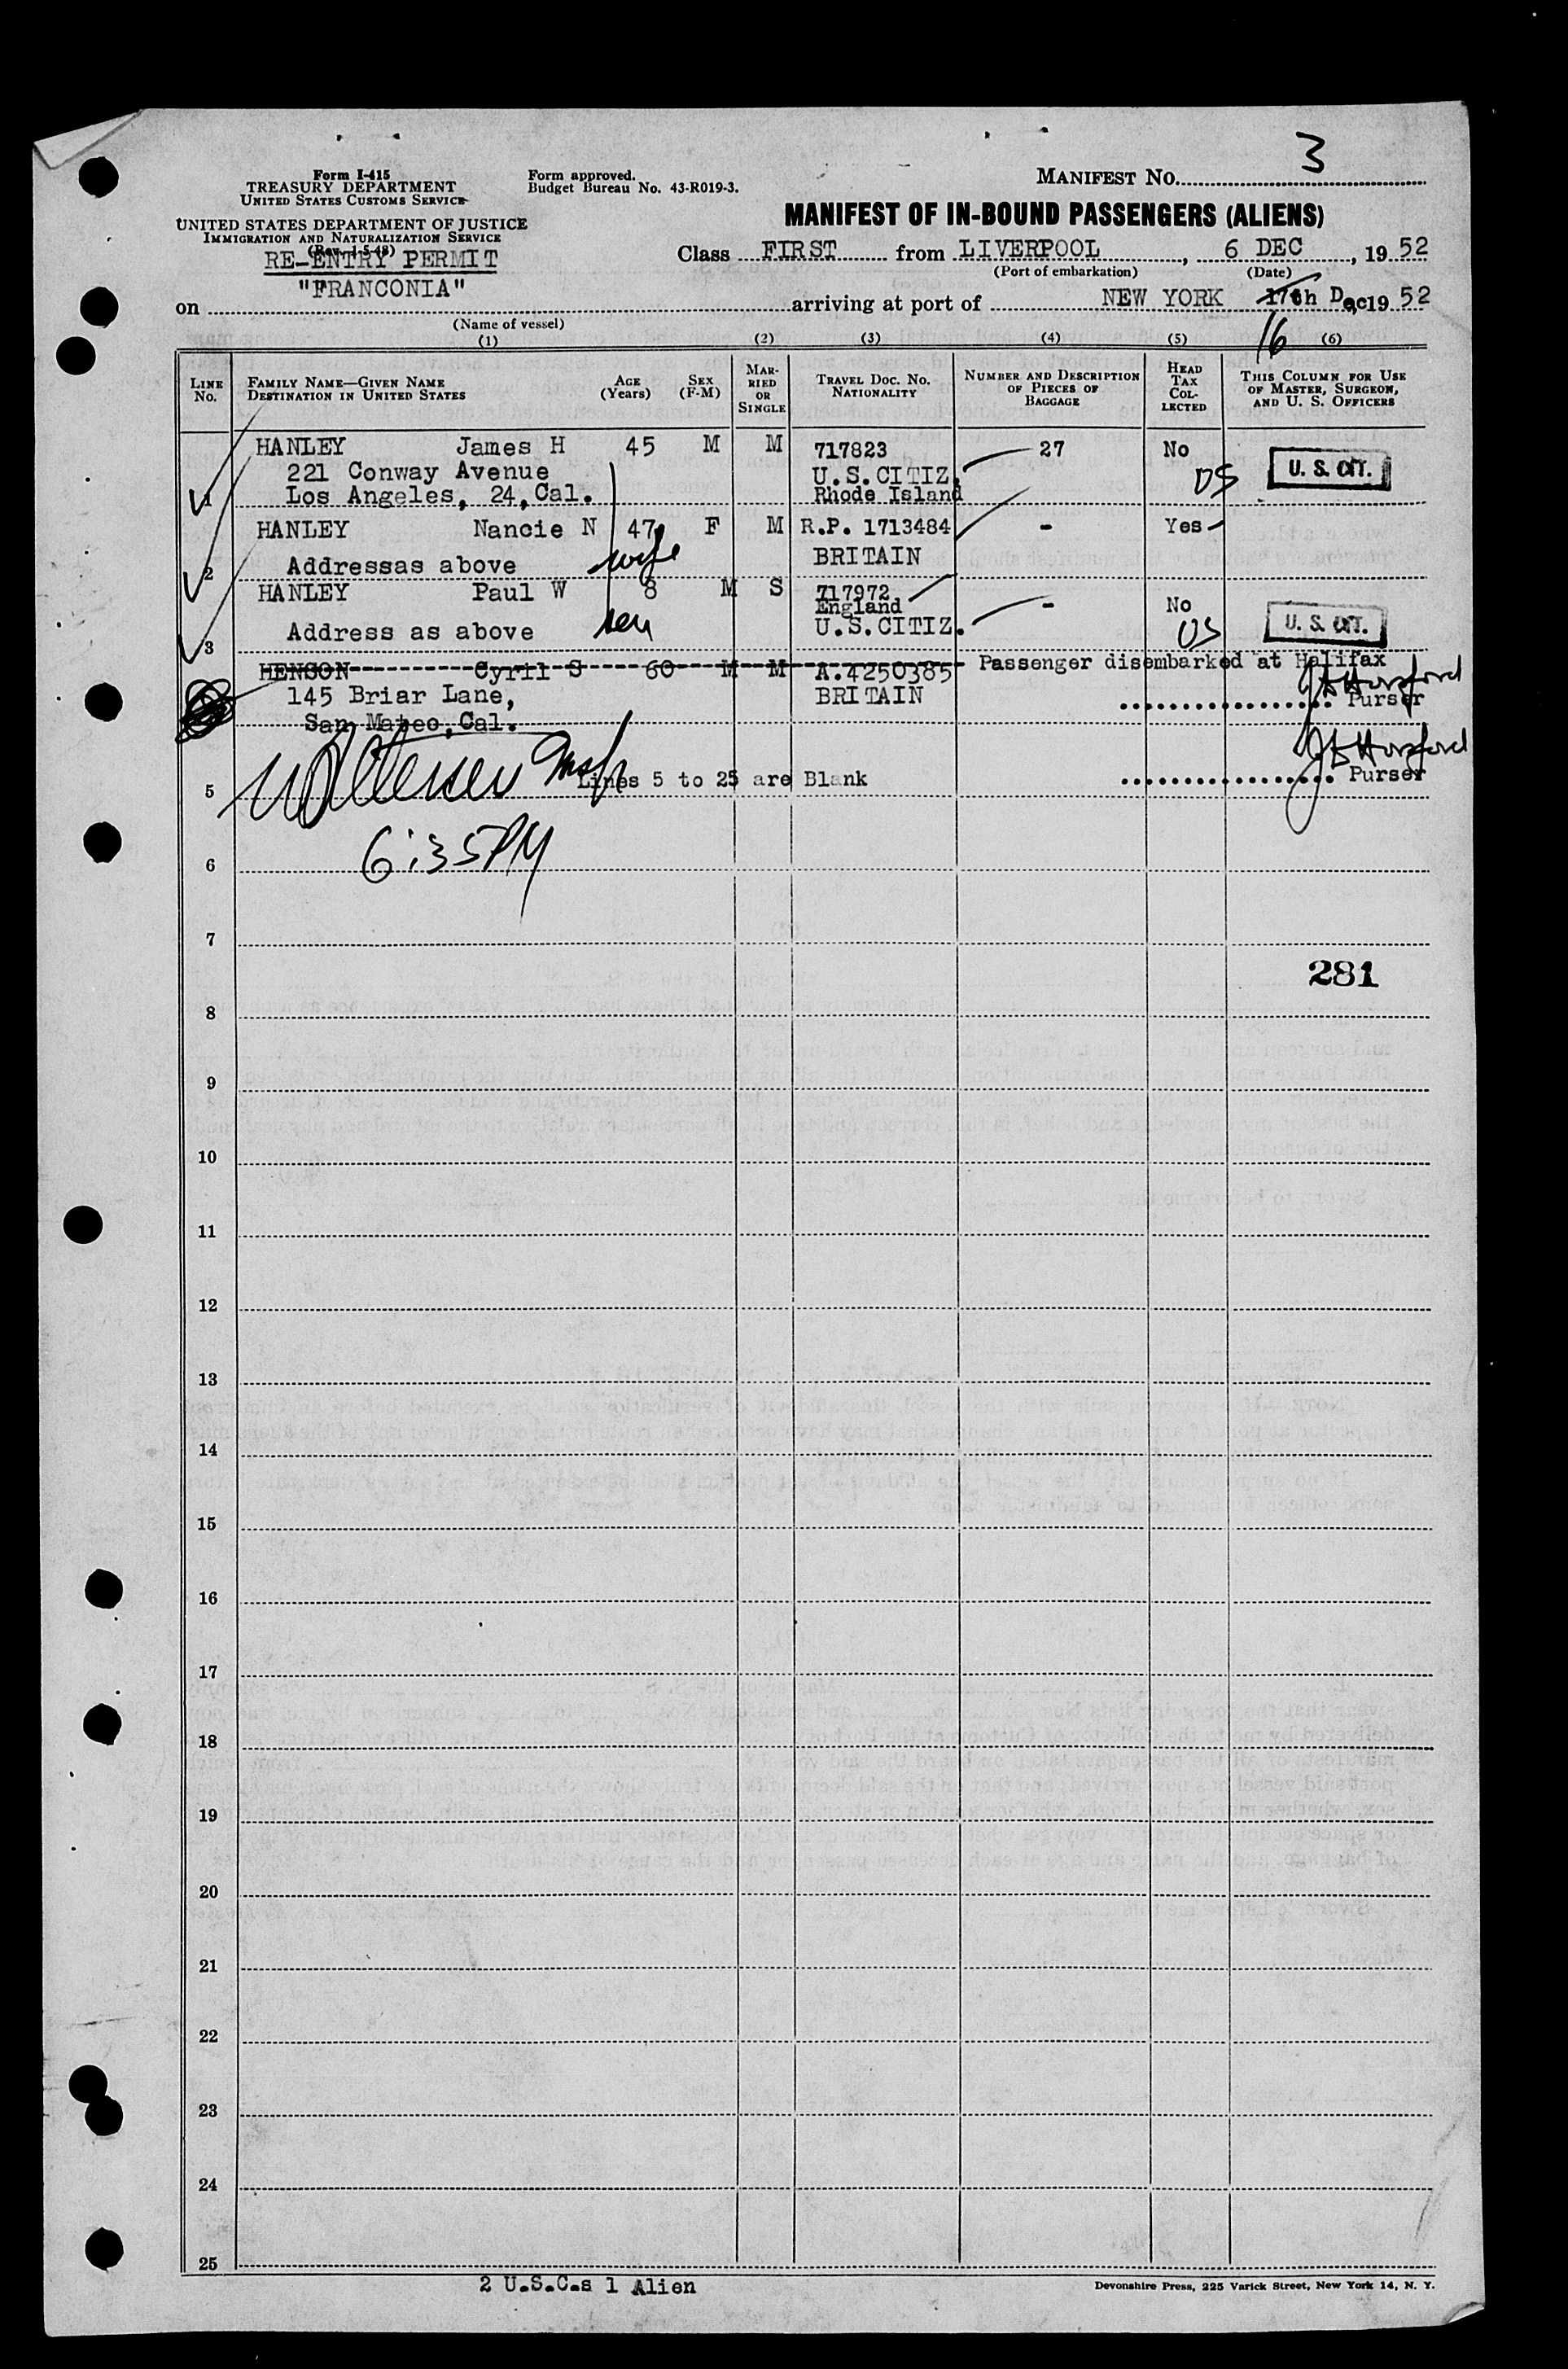 3
Form I-415
TREASURY DEPARTMENT
UNITED STATES CUSTOMS SERVICE
Form approved.
Budget Bureau No. 43-R019-3.
MANIFEST NO.
UNITED STATES DEPARTMENT OF JUSTICE
IMMIGRATION AND NATURALIZATION SERVICE
(Rev. 1-5-48)
MANIFEST OF IN-BOUND PASSENGERS (ALIENS)
RE-ENTRY PERMIT
Class FIRST from LIVERPOOL, 6 DEC, 19 52
(Port of embarkation) (Date)
on "FRANCONIA" arriving at port of NEW YORK 17th Dec 19 52
16
(Name of vessel)
(1) (2) (3) (4) (5) (6)
LINE No. FAMILY NAME—GIVEN NAME DESTINATION IN UNITED STATES AGE (Years) SEX (F-M) MARRIED OR SINGLE TRAVEL DOC. NO. NATIONALITY NUMBER AND DESCRIPTION OF PIECES OF BAGGAGE HEAD TAX COLLECTED THIS COLUMN FOR USE OF MASTER, SURGEON, AND U. S. OFFICERS
HANLEY James H 45 M M 717823 27 No
221 Conway Avenue U.S.CITIZ. US U. S. CIT.
1 Los Angeles, 24, Cal. Rhode Island
HANLEY Nancie N 47 F M R.P. 1713484 - Yes
2 Addressas above wife BRITAIN
HANLEY Paul W 8 M S 717972 - No
England
3 Address as above son U.S.CITIZ. US U. S. CIT.
HENSON Cyril S 60 M M A.4250385 Passenger disembarked at Halifax
145 Briar Lane, BRITAIN Purser
San Mateo, Cal.
5 Lines 5 to 25 are Blank Purser
6 6:35PM
7
281
8
9
10
11
12
13
14
15
16
17
18
19
20
21
22
23
24
25
2 U.S.C.s 1 Alien
Devonshire Press, 225 Varick Street, New York 14, N. Y.